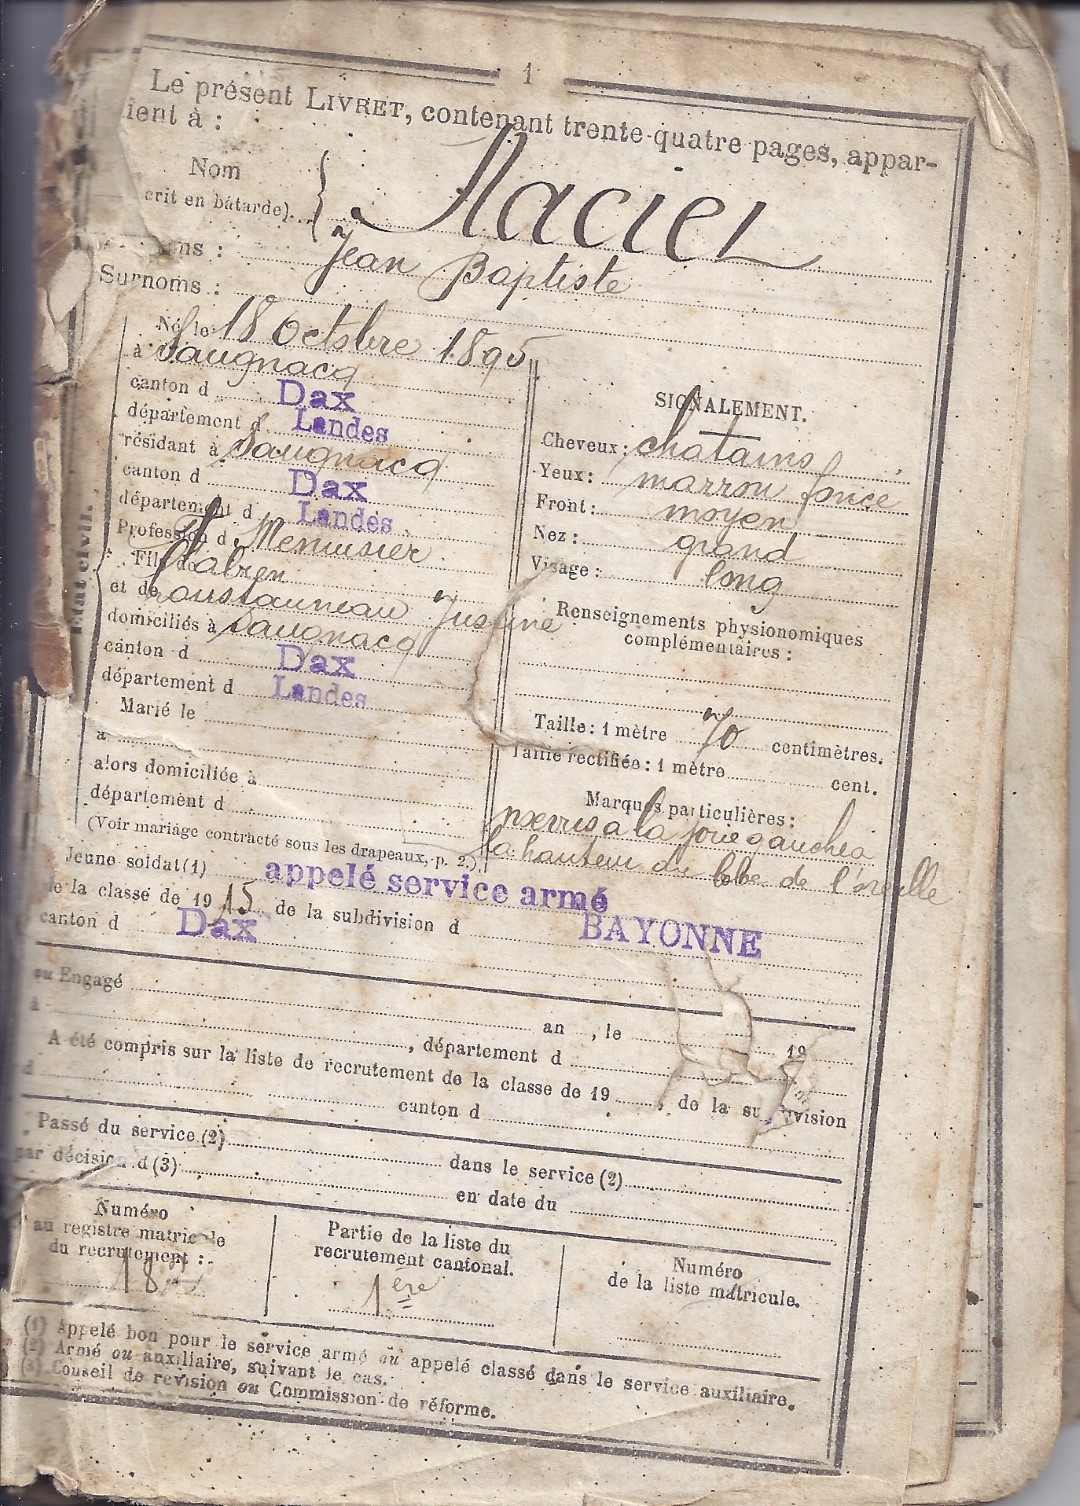 1
Le présent LIVRET, contenant trente-quatre pages, appar-
ient à :
Nom
crit en bâtarde).
Maciel
ns : Jean Baptiste
Surnoms :
Né le 18 Octobre 1895
à Saugnacq
canton d Dax
département d Landes
résidant à Saugnacq
canton d Dax
département d Landes
Profession d Menuisier
Fils de
et de Loustauneau Justine
domiciliés à Saugnacq
canton d Dax
département d Landes
Marié le
à
alors domiciliée à
département d
(Voir mariage contracté sous les drapeaux, p. 2.)
État civil.
SIGNALEMENT.
Cheveux : chatains
Yeux : marron foncé
Front : moyen
Nez : grand
Visage : long
Renseignements physionomiques
complémentaires :
Taille : 1 mètre 70 centimètres.
Taille rectifiée : 1 mètre cent.
Marques particulières :
à la joue gauche à
la hauteur du lobe de l'oreille
Jeune soldat (1) appelé service armé
de la classe de 1915 de la subdivision d BAYONNE
canton d Dax
ou Engagé
à an , le 19
, département d
A été compris sur la liste de recrutement de la classe de 19 , de la subdivision
d canton d
Passé du service (2) dans le service (2)
par décision d (3) en date du
Numéro
au registre matricule
du recrutement :
Partie de la liste du
recrutement cantonal.
1ère
Numéro
de la liste matricule.
(1) Appelé bon pour le service armé ou appelé classé dans le service auxiliaire.
(2) Armé ou auxiliaire, suivant le cas.
(3) Conseil de révision ou Commission de réforme.